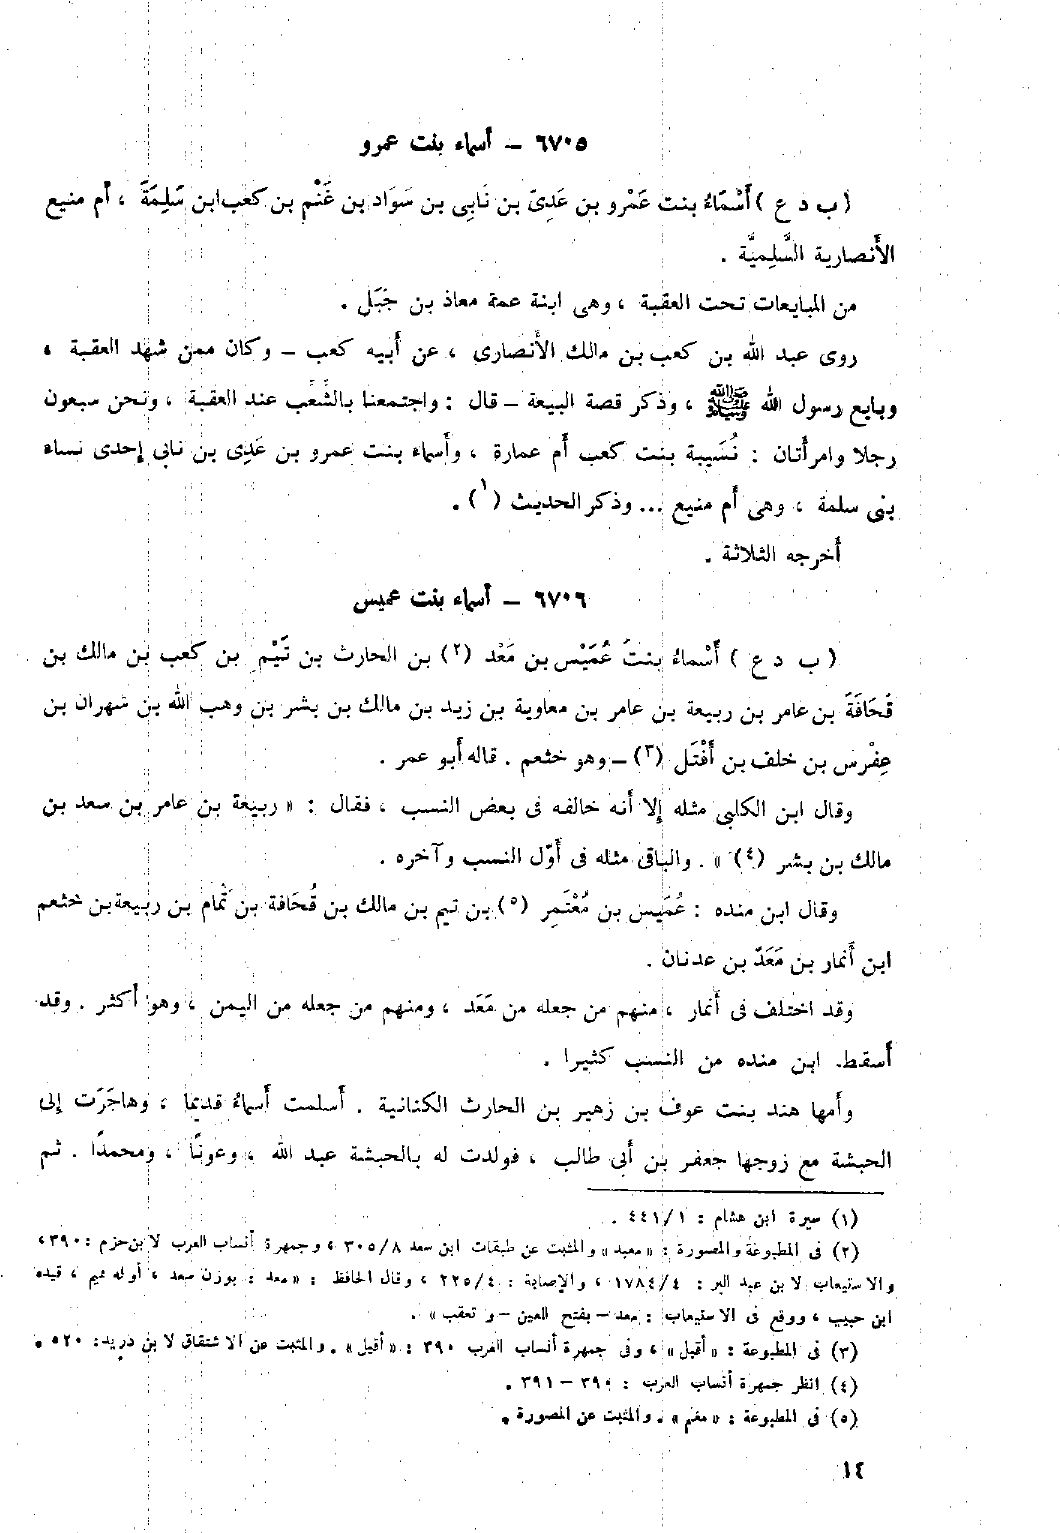 ٦٧٠٥ – أسماء بنت عمرو
( ب د ع ) أَسْمَاءُ بنت عَمْرو بن عَدِىّ بن نَابِى بن سَوَاد بن غَنْم بن كعب ابن سَلِمَةَ ، أم منيع
الأَنصارية السَّلِمِيَّة .
من المبايعات تحت العقبة ، وهى ابنة عمة معاذ بن جَبَل .
روى عبد الله بن كعب بن مالك الأَنصارى ، عن أَبيه كعب – وكان ممن شهد العقبة ،
وبايع رسول الله ﷺ ، وذكر قصة البيعة – قال : واجتمعنا بالشِّعْب عند العقبة ، ونحن سبعون
رجلا وامرأَتان : نُسَيبة بنت كعب أُم عمارة ، وأَسماء بنت عمرو بن عَدِى بن نابى إحدى نساء
بنى سلمة ، وهى أُم منيع ... وذكر الحديث (١) .
أَخرجه الثلاثة .
٦٧٠٦ – أسماء بنت عميس
( ب د ع ) أَسْماءُ بنتُ عُمَيْس بن مَعْد (٢) بن الحارث بن تَيْم بن كعب بن مالك بن
قُحَافَةَ بن عامر بن ربيعة بن عامر بن معاوية بن زيد بن مالك بن بشر بن وهب الله بن شهران بن
عِفْرِس بن خلف بن أَفْتَل (٣) – وهو خثعم . قاله أَبو عمر .
وقال ابن الكلبى مثله إِلا أَنه خالفه فى بعض النسب ، فقال : « ربيعة بن عامر بن سعد بن
مالك بن بشر (٤) » . والباقى مثله فى أَوّل النسب وآخره .
وقال ابن منده : عُمَيس بن مُعْتَمِر (٥) بن تيم بن مالك بن قُحَافة بن تَمام بن ربيعة بن خثعم
ابن أَنمار بن مَعَدّ بن عدنان .
وقد اختلف فى أَنمار ، منهم من جعله من مَعَد ، ومنهم من جعله من اليمن ، وهو أَكثر . وقد
أَسقط ابن منده من النسب كثيرا .
وأُمها هند بنت عوف بن زهير بن الحارث الكنانية . أَسلمت أَسماءُ قديما ، وهاجَرَت إِلى
الحبشة مع زوجها جعفر بن أَبى طالب ، فولدت له بالحبشة عبد الله ، وعونًا ، ومحمدًا . ثم
(١) سيرة ابن هشام : ٤٤١/١ .
(٢) فى المطبوعة والمصورة : « معبد » والمثبت عن طبقات ابن سعد ٣٠٥/٨ ، وجمهرة أنساب العرب لابن حزم : ٣٩٠ ،
والاستيعاب لابن عبد البر : ١٧٨٤/٤ ، والإصابة : ٢٢٥/٤ ، وقال الحافظ : « معد : بوزن سعد ، أوله ميم ، قيده
ابن حبيب ، ووقع فى الاستيعاب : معد – بفتح العين – وتعقب » .
(٣) فى المطبوعة : « أقبل » ، وفى جمهرة أنساب العرب ٣٩٠ : « أفيل » . والمثبت عن الاشتقاق لابن دريد : ٥٢٠ .
(٤) انظر جمهرة أنساب العرب : ٣٩٠ – ٣٩١ .
(٥) فى المطبوعة : « مغنم » . والمثبت عن المصورة .
١٤